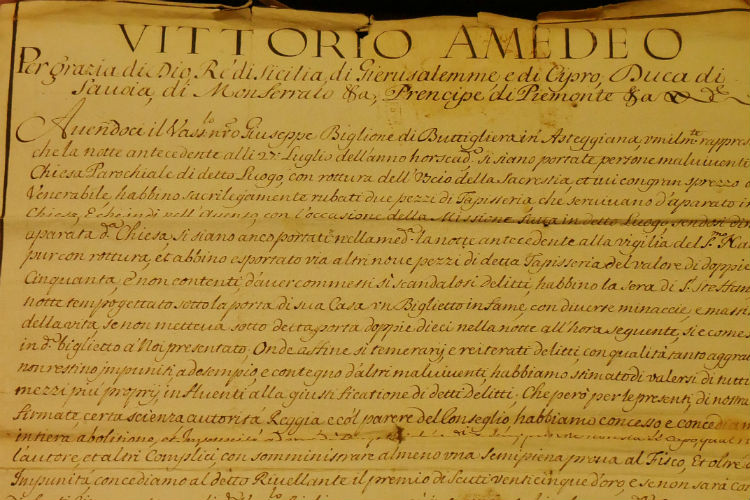 VITTORIO AMEDEO
Per grazia di Dio, Ré di Sicilia, di Gierusalemme e di Cipro, Duca di
Savoia, di Monferrato &a, Prencipe di Piemonte &a
Avendoci il Vass.lo nr̃o Giuseppe Biglione di Buttigliera in Asteggiana, vmilm.te rappres
che la notte antecedente alli 27 Luglio dell'anno hor scad.o si siano portate persone malviventi
Chiesa Parochiale di detto Luogo, con rottura dell'Vscio della Sacrestia, et iui con gran sprezzo
Venerabile, habbino sacrilegamente rubati due pezzi di Tapisseria, che seruiuano d'aparato in
Chiesa, E che indi nell' con l'occasione della Missione in detto Luogo,
aparata d.a Chiesa, si siano anco portati nella med.a la notte antecedente alla vigilia del S.mo
pur con rottura, et abbino esportato via altri noue pezzi di detta Tapisseria del valore di doppie
Cinquanta, è non contenti d'aver commessi sì scandalosi delitti, habbino la sera di S.
notte tempo gettato sotto la porta di sua Casa vn Biglietto infame, con diverse minaccie, e mass
della vita se non metteva sotto detta porta doppie dieci nella notte all'hora seguente, si e come
in d.o biglietto à Noi presentato, Onde affine si temerarij e reiterati delitti con qualità tanto aggrau
non restino impuniti, ad esempio, e contegno d'altri malviventi, habbiamo stimato di valersi di tutti
mezzi più proprij influenti alla giustificatione di detti Delitti. Che però per le presenti, di nostra
fermate, certa scienza autorità Reggia, e col parere del Conseglio habbiamo concesso, e concediam
intiera abolitione, et Impunità
l'autore, et altri Complici, con somministrare almeno vna semipiena prova al Fisco, Et oltre
Impunità, concediamo al detto Rivellante il premio di Scuti venticinque d'oro, e non sarà